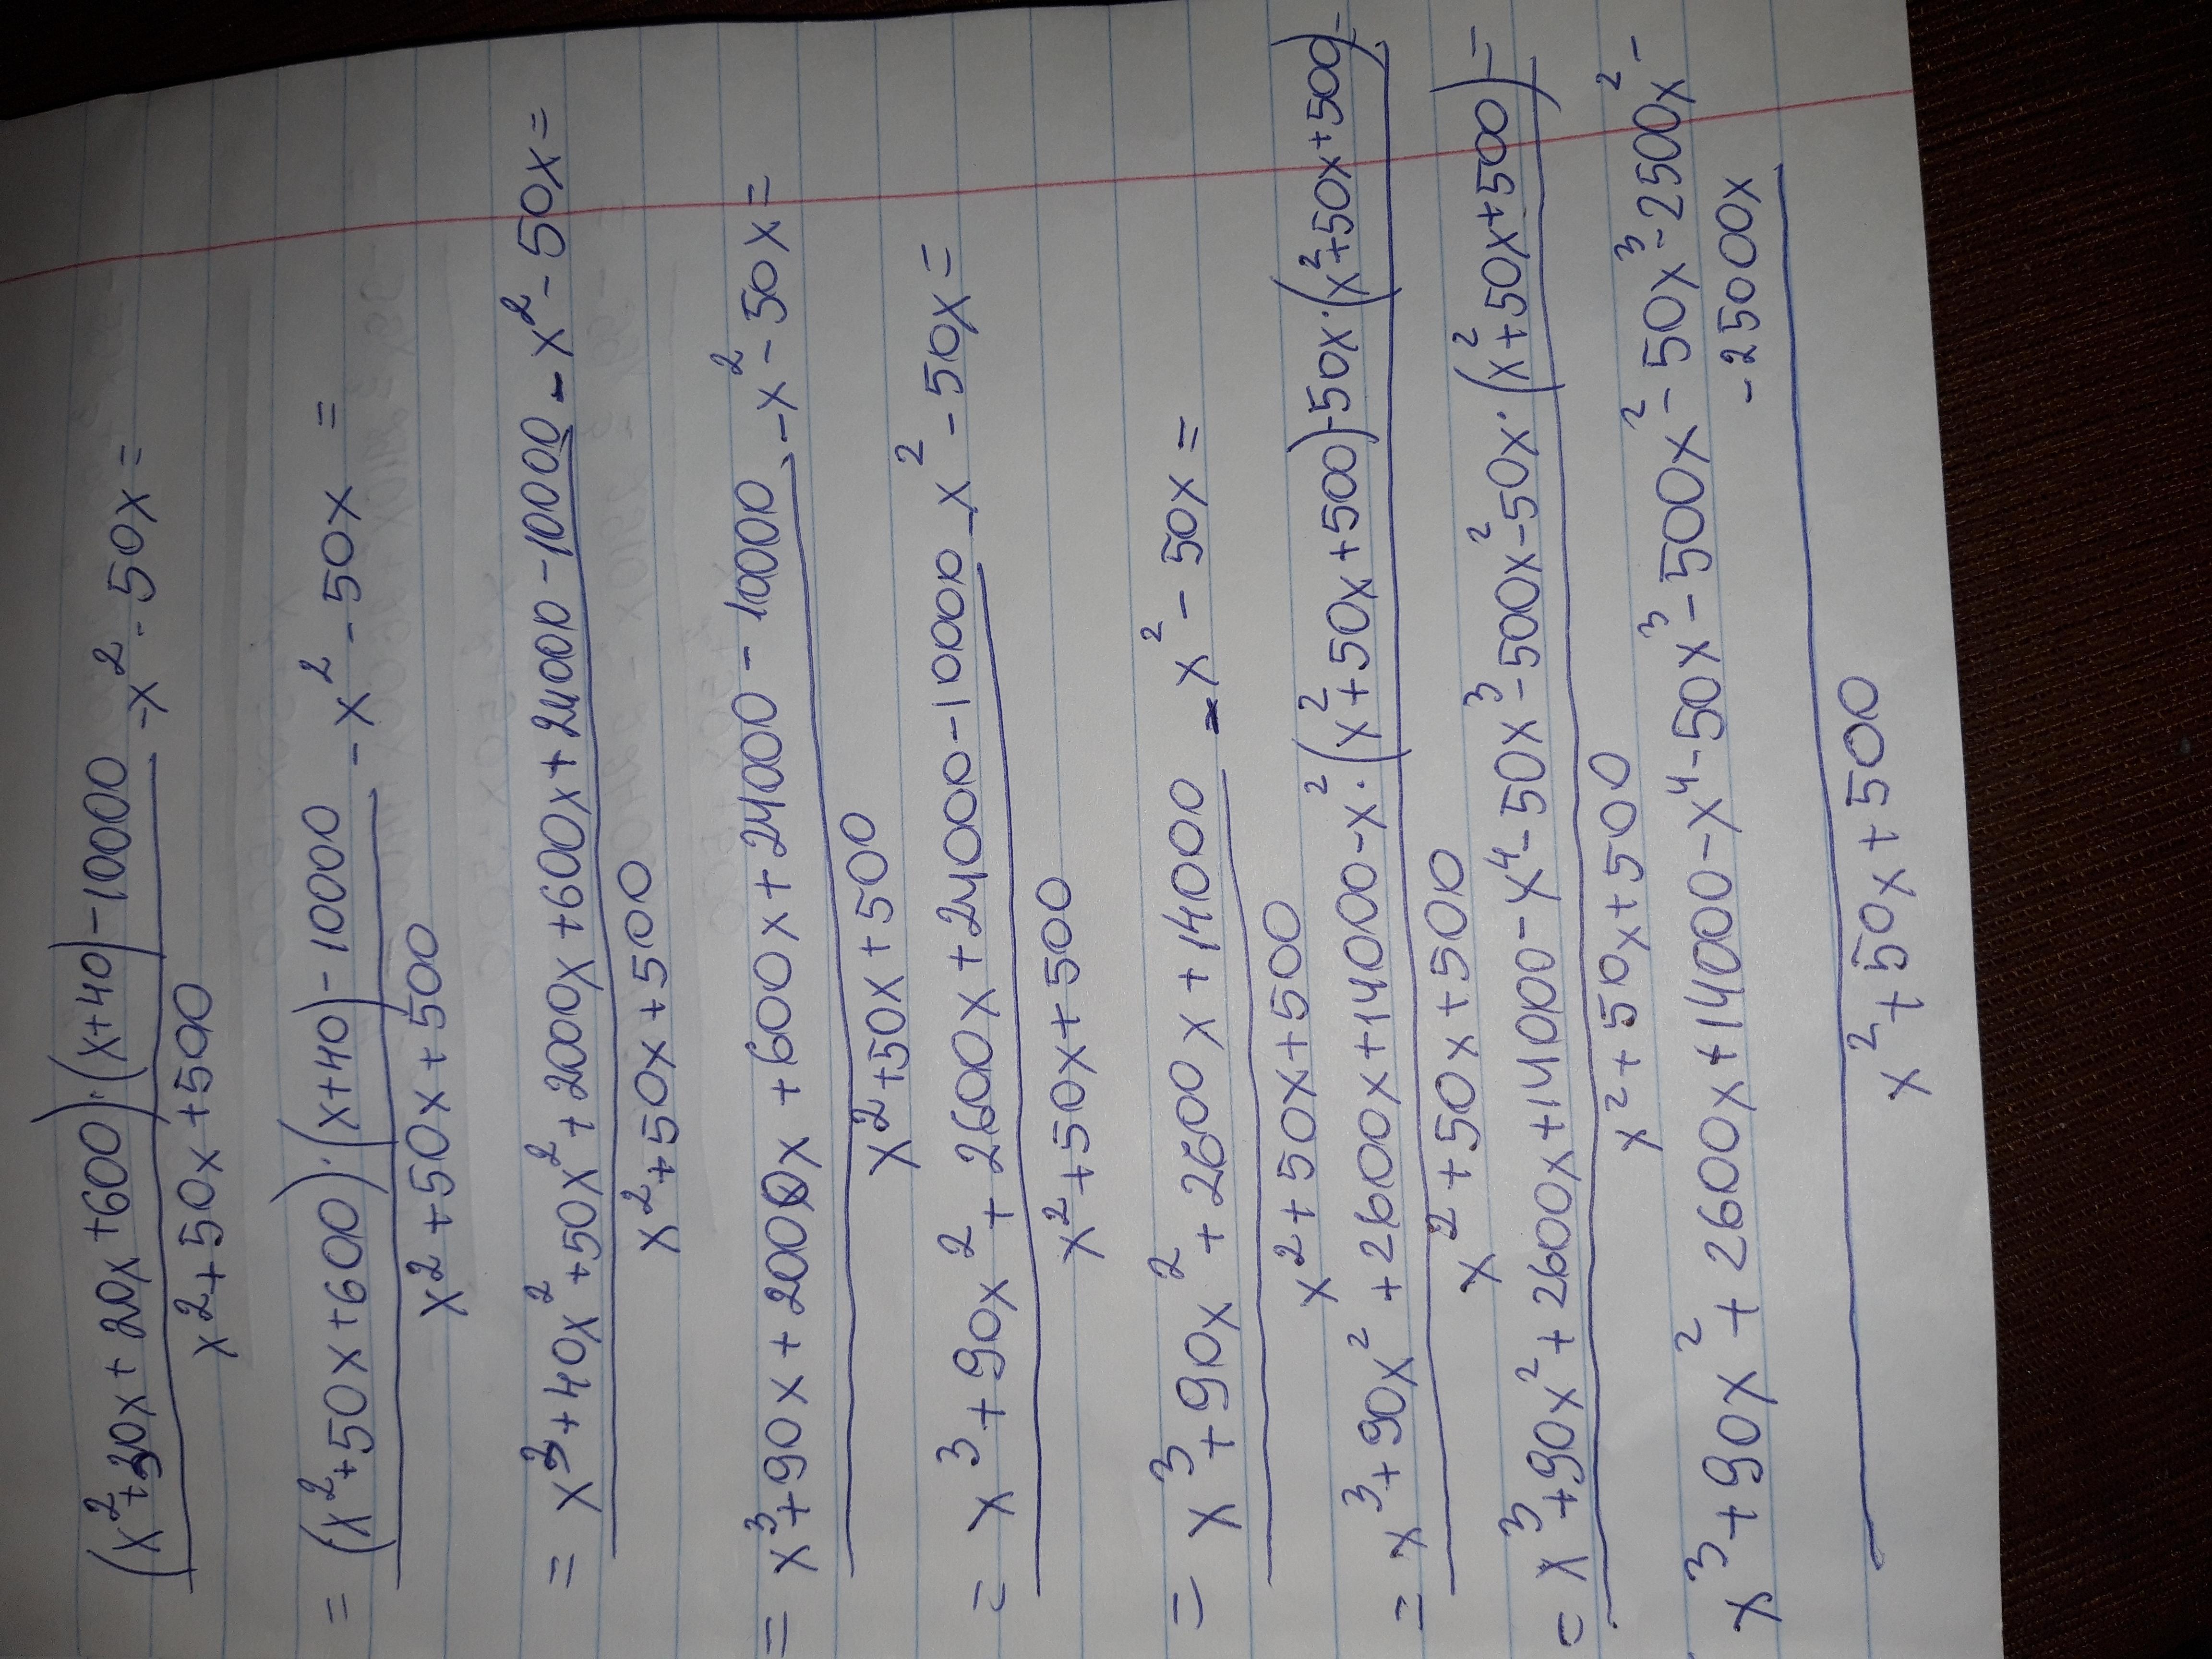 (x²+30x+20x+600)·(x+40)-10000 -x²-50x=
x²+50x+500
=(x²+50x+600)·(x+40)-10000 -x²-50x =
x²+50x+500
= x³+40x²+50x²+2000x+600x+24000-10000 -x²-50x=
x²+50x+500
= x³+90x+2000x+600x+24000-10000 -x²-50x=
x²+50x+500
= x³+90x²+2600x+24000-10000 -x²-50x=
x²+50x+500
= x³+90x²+2600x+14000 -x²-50x=
x²+50x+500
= x³+90x²+2600x+14000-x²·(x²+50x+500)-50x·(x²+50x+500)=
x²+50x+500
= x³+90x²+2600x+14000-x⁴-50x³-500x²-50x·(x²+50x+500)=
x²+50x+500
x³+90x²+2600x+14000-x⁴-50x³-500x²-50x³-2500x²-
-25000x
x²+50x+500